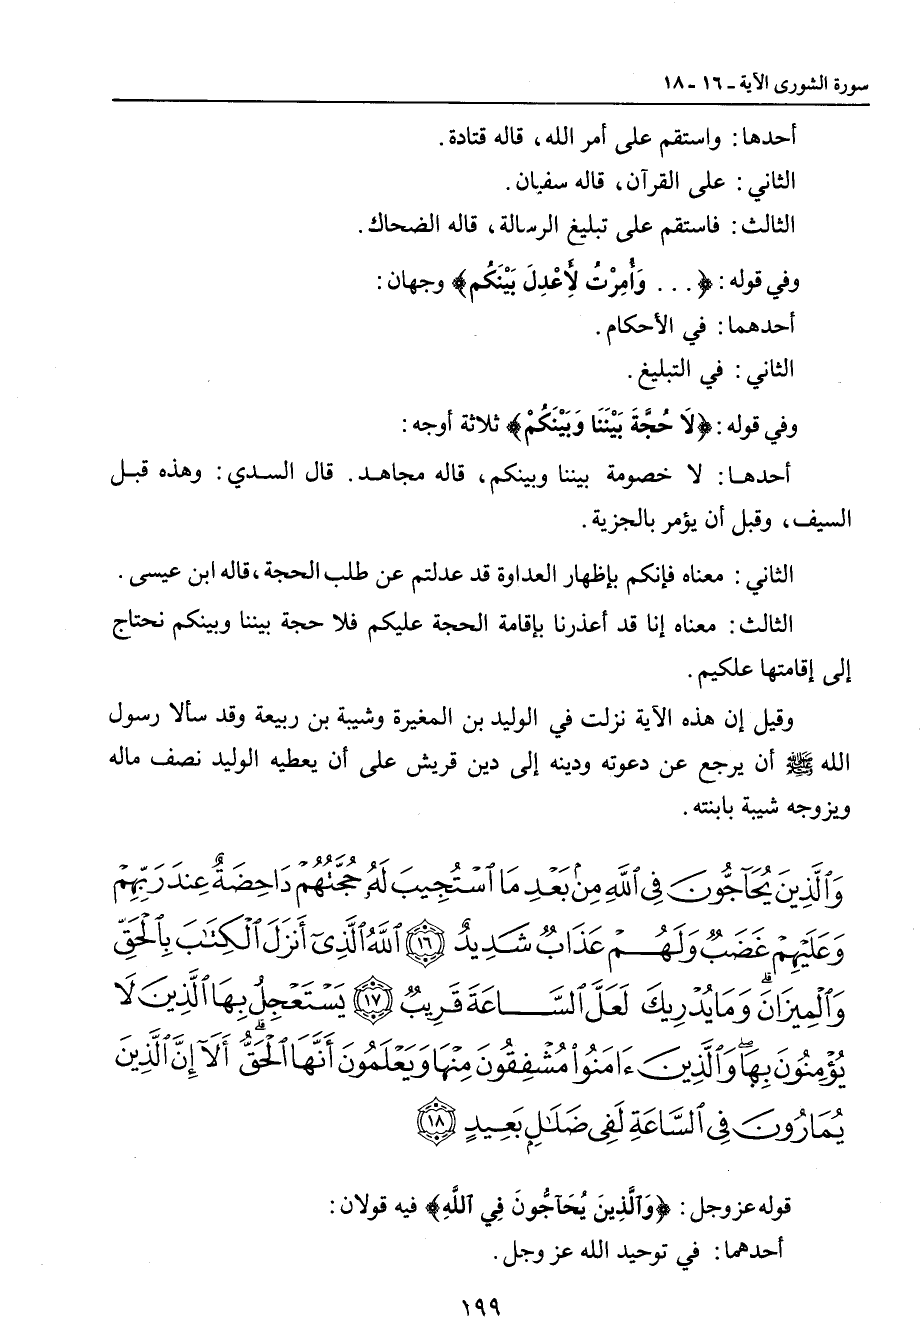 سورة الشورى الآية ـ ١٦ ـ ١٨
أحدها: واستقم على أمر الله، قاله قتادة.
الثاني: على القرآن، قاله سفيان.
الثالث: فاستقم على تبليغ الرسالة، قاله الضحاك.
وفي قوله: ﴿... وَأُمِرْتُ لِأَعْدِلَ بَيْنَكُم﴾ وجهان:
أحدهما: في الأحكام.
الثاني: في التبليغ.
وفي قوله: ﴿لَا حُجَّةَ بَيْنَنَا وَبَيْنَكُمْ﴾ ثلاثة أوجه:
أحدها: لا خصومة بيننا وبينكم، قاله مجاهد. قال السدي: وهذه قبل
السيف، وقبل أن يؤمر بالجزية.
الثاني: معناه فإنكم بإظهار العداوة قد عدلتم عن طلب الحجة، قاله ابن عيسى.
الثالث: معناه إنا قد أعذرنا بإقامة الحجة عليكم فلا حجة بيننا وبينكم نحتاج
إلى إقامتها علكيم.
وقيل إن هذه الآية نزلت في الوليد بن المغيرة وشيبة بن ربيعة وقد سألا رسول
الله ﷺ أن يرجع عن دعوته ودينه إلى دين قريش على أن يعطيه الوليد نصف ماله
ويزوجه شيبة بابنته.
وَٱلَّذِينَ يُحَآجُّونَ فِى ٱللَّهِ مِنۢ بَعْدِ مَا ٱسْتُجِيبَ لَهُۥ حُجَّتُهُمْ دَاحِضَةٌ عِندَ رَبِّهِمْ
وَعَلَيْهِمْ غَضَبٌ وَلَهُمْ عَذَابٌ شَدِيدٌ ١٦ ٱللَّهُ ٱلَّذِىٓ أَنزَلَ ٱلْكِتَٰبَ بِٱلْحَقِّ
وَٱلْمِيزَانَ ۗ وَمَا يُدْرِيكَ لَعَلَّ ٱلسَّاعَةَ قَرِيبٌ ١٧ يَسْتَعْجِلُ بِهَا ٱلَّذِينَ لَا
يُؤْمِنُونَ بِهَا ۖ وَٱلَّذِينَ ءَامَنُوا۟ مُشْفِقُونَ مِنْهَا وَيَعْلَمُونَ أَنَّهَا ٱلْحَقُّ ۗ أَلَآ إِنَّ ٱلَّذِينَ
يُمَارُونَ فِى ٱلسَّاعَةِ لَفِى ضَلَٰلٍۭ بَعِيدٍ ١٨
قوله عز وجل: ﴿وَٱلَّذِينَ يُحَآجُّونَ فِي ٱللَّهِ﴾ فيه قولان:
أحدهما: في توحيد الله عز وجل.
١٩٩